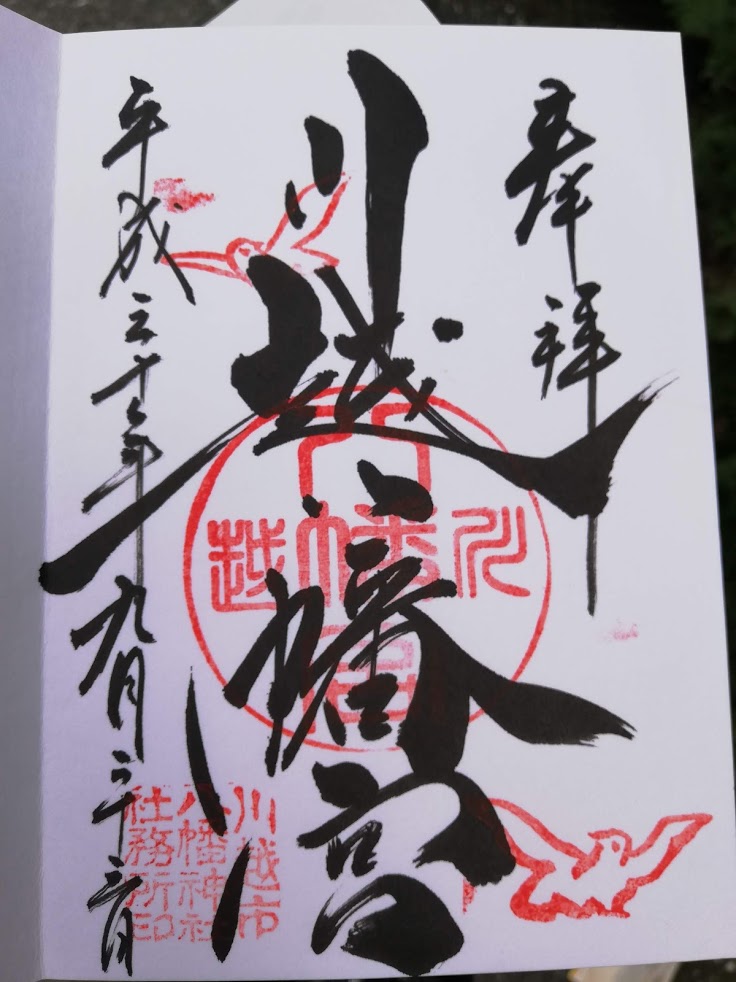 奉拝
川越八幡宮
川
八幡宮
越
川越市
八幡神社
社務所印
平成三十年九月二十三日